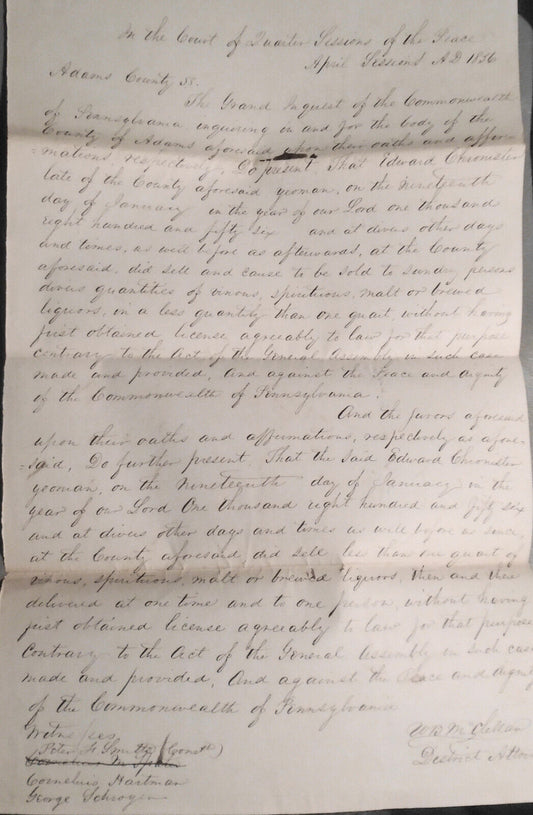 In the Court of Quarter Sessions of the Peace
April Sessions A.D 1856
Adams County SS.
The Grand Inquest of the Commonwealth
of Pennsylvania, inquiring in and for the body of the
County of Adams aforesaid upon their oaths and affir-
=mations, respectively, Do present, That Edward Chronister
late of the County aforesaid yeoman, on the Nineteenth
day of January in the year of our Lord one thousand
eight hundred and fifty six and at divers other days
and times, as well before as afterwards, at the County
aforesaid, did sell and cause to be sold to sundry persons
divers quantities of vinous, spiritious, malt or brewed
liquors, in a less quantity than one quart, without having
first obtained license agreeably to law for that purpose
contrary to the Act of the General Assembly in such case
made and provided, And against the Peace and dignity
of the Commonwealth of Pennsylvania.
And the jurors aforesaid
upon their oaths and affirmations, respectively as afore-
=said, Do further present, That the said Edward Chronister
yeoman, on the Nineteenth day of January in the
year of our Lord One thousand eight hundred and fifty six
and at divers other days and times as well before as since,
at the County aforesaid did sell less than one quart of
vinous, spiritious, malt or brewed liquors, then and there
delivered at one time and to one person, without having
first obtained license agreeably to law for that purpose
Contrary to the Act of the General Assembly in such case
made and provided, And against the Peace and dignity
of the Commonwealth of Pennsylvania
Witnesses
(Peter F Smith (Const)
Cornelius Hartman
George Schroyer
WB McClellan
District Attor